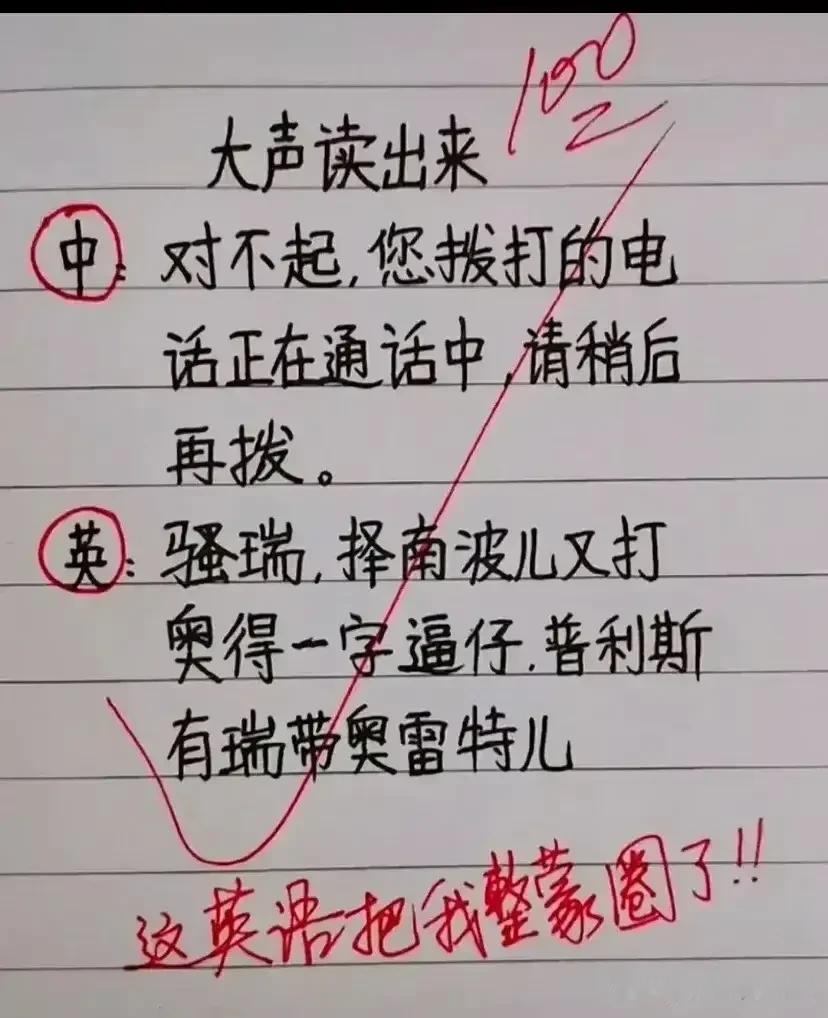 100
大声读出来
中：对不起,您拨打的电
话正在通话中,请稍后
再拨。
英：骚瑞,择南波儿又打
奥得一字逼仔.普利斯
有瑞带奥雷特儿
这英语把我整蒙圈了!!